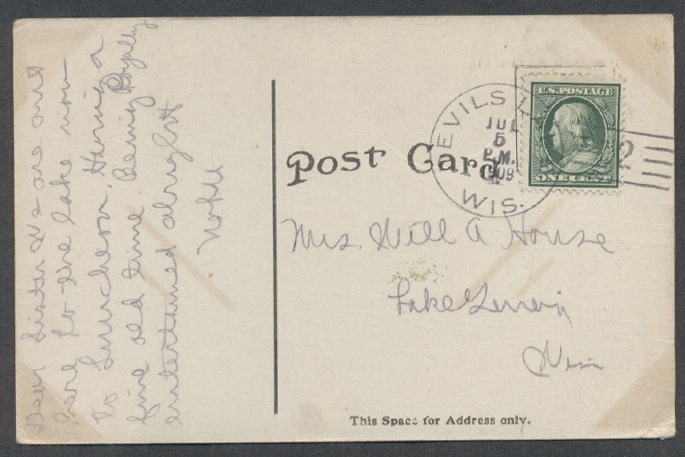 Dear Sister We are out
here to the lake now
to Luncheon. Having a
fine old time Being Royally
entertained alright
Post Card
U.S. POSTAGE
ONE CENT
EVILS
JUL
5
P.M.
1909
WIS.
2
Mrs. Will A House
Lake
Wis
This Space for Address only.